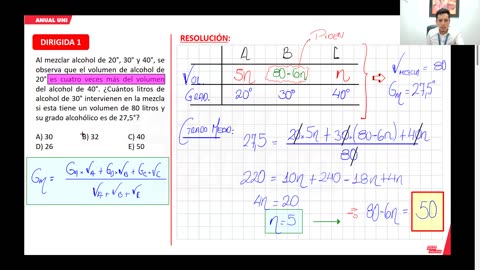 ANUAL UNI
DIRIGIDA 1
Al mezclar alcohol de 20°, 30° y 40°, se
observa que el volumen de alcohol de
20° es cuatro veces más del volumen
del alcohol de 40°. ¿Cuántos litros de
alcohol de 30° intervienen en la mezcla
si esta tiene un volumen de 80 litros y
su grado alcohólico es de 27,5°?
A) 30 B) 32 C) 40
D) 26 E) 50
Gm = (GA×VA + GB×VB + GC×VC) / (VA + VB + VC)
RESOLUCIÓN:
Piden
A B C
Vol 5n 80-6n n
Grad. 20° 30° 40°
Vmezcla = 80
Gm = 27,5°
Grado Medio:
27,5 = (20.5n + 30.(80-6n) + 40n) / 80
220 = 10n + 240 - 18n + 4n
4n = 20
n = 5
80-6n = 50